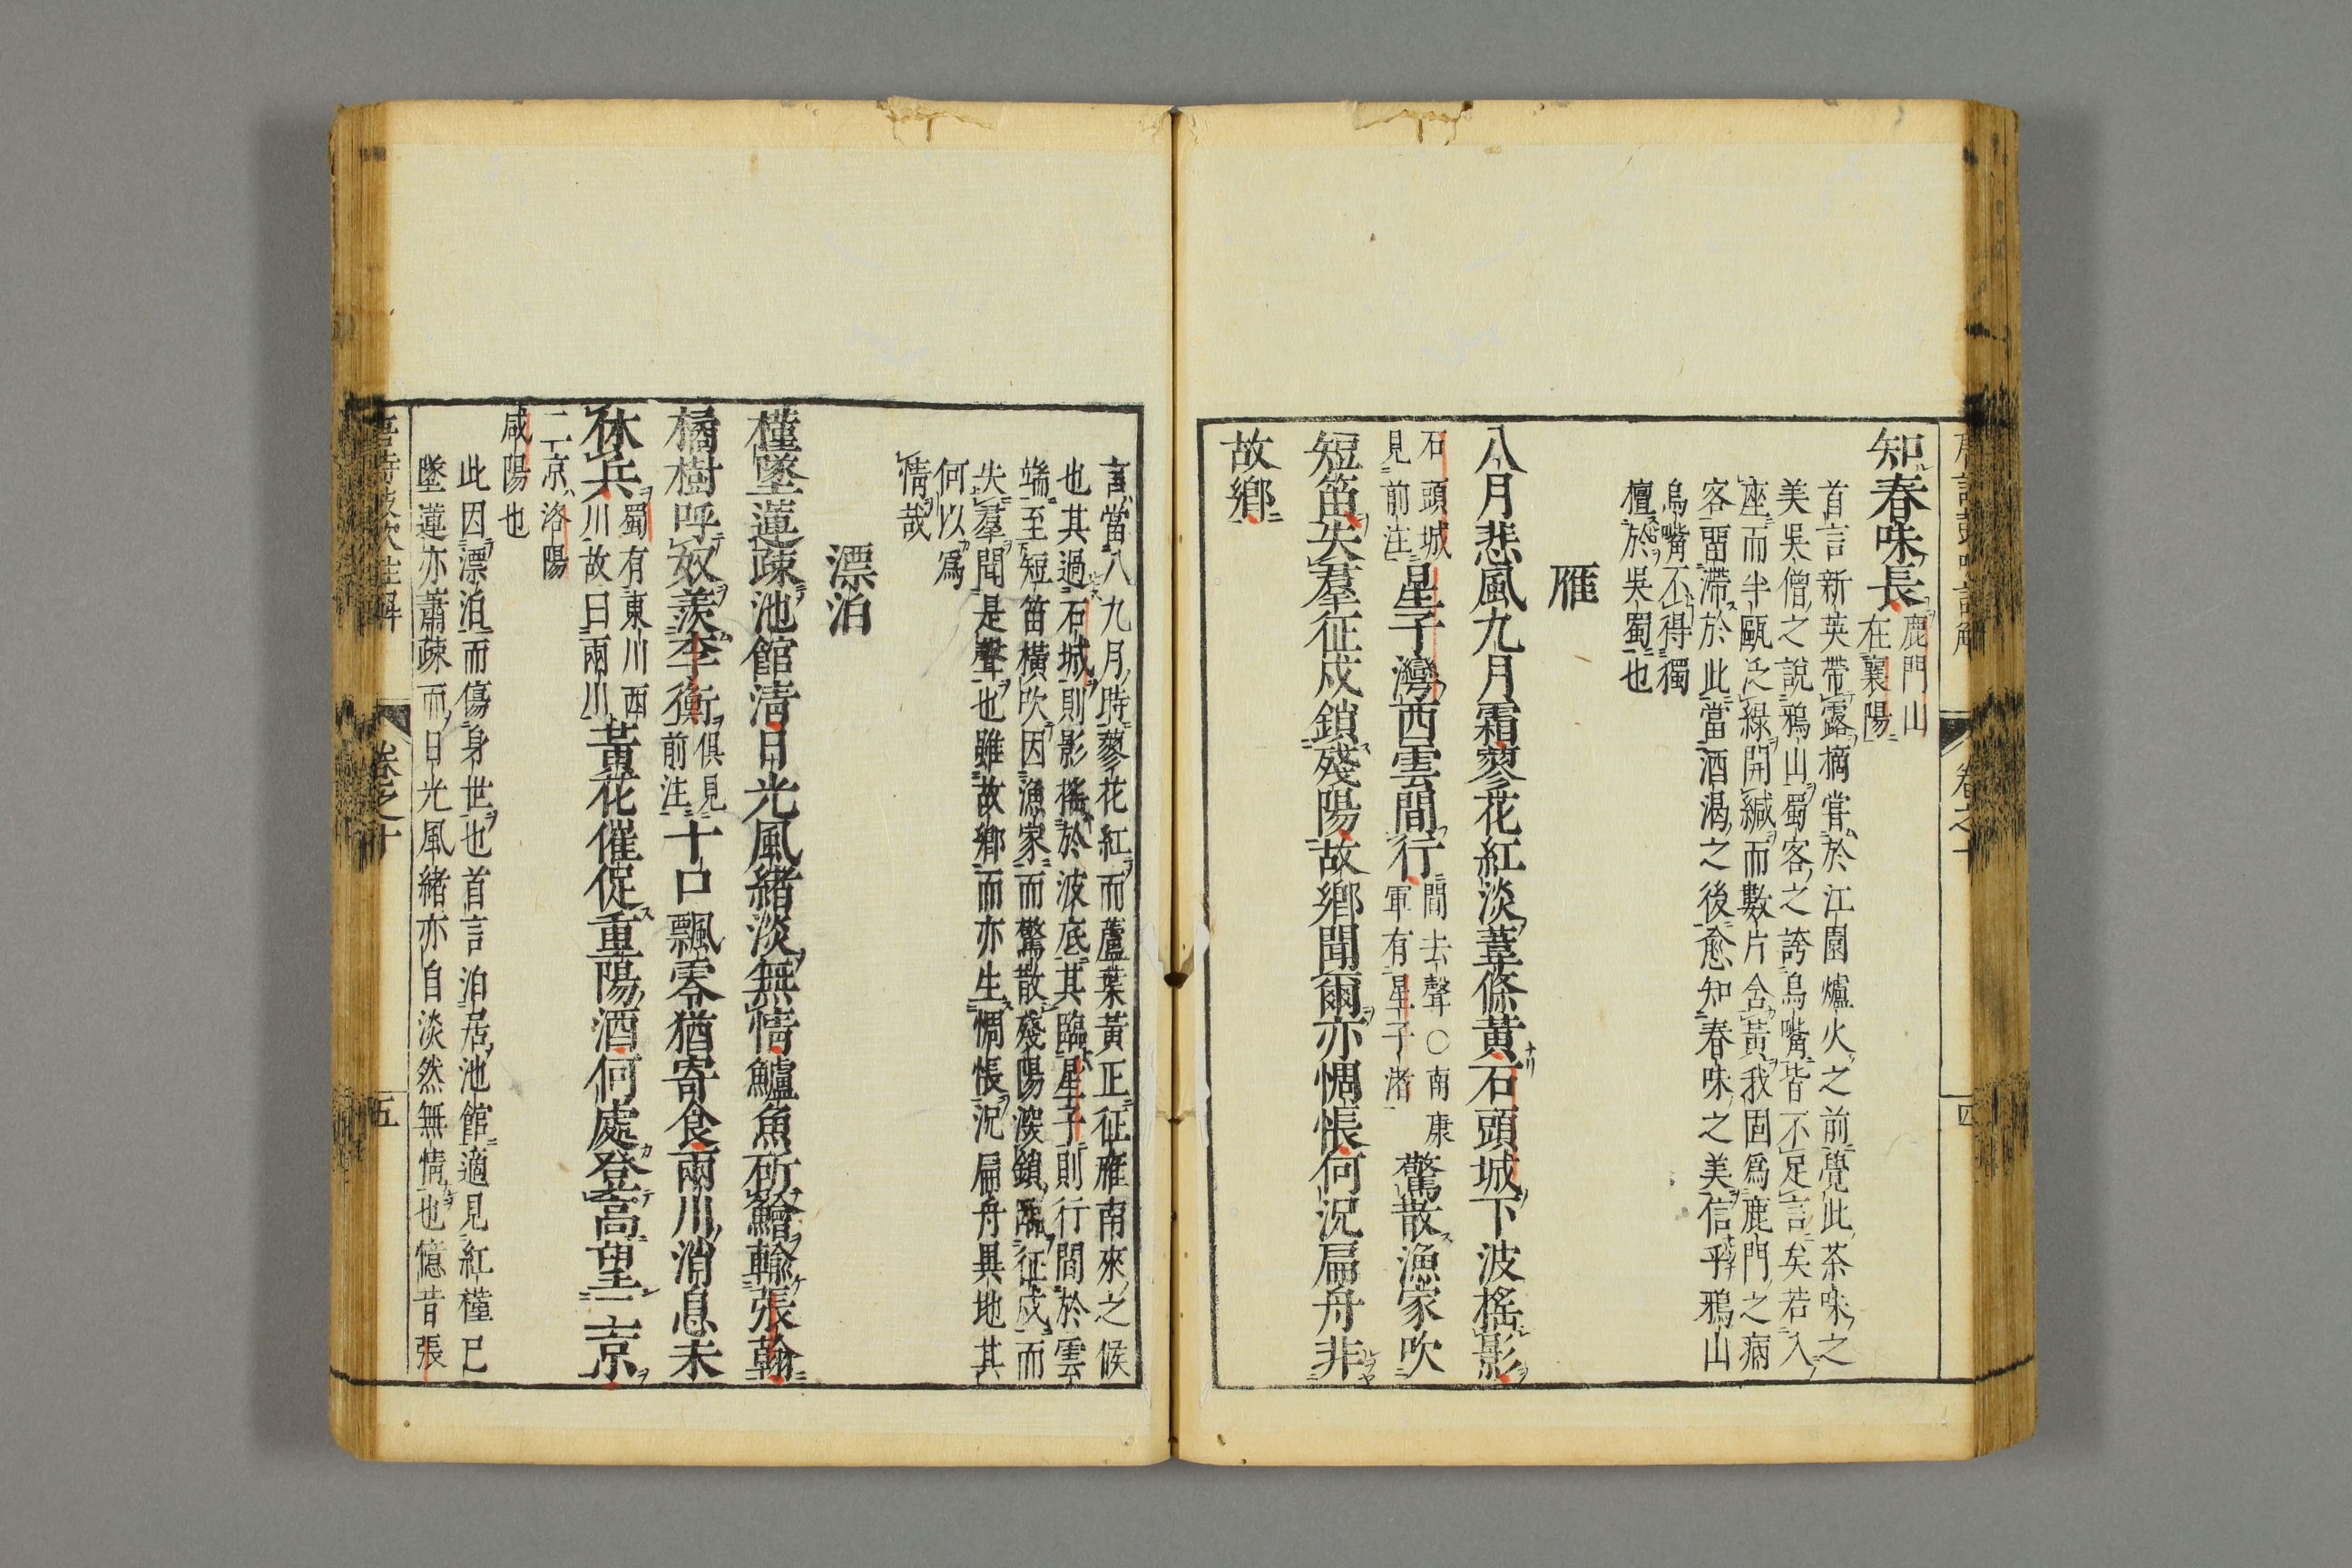 知春味長鹿門山
在襄陽
首言新英帶露摘嘗於江園爐火之前覺此茶味之
美吳僧之說鴉山蜀客之誇烏嘴皆不足言矣若入
座而半甌泛綠開緘而數片含黃我固爲鹿門之病
客畱滯於此當酒渴之後愈知春味之美信乎鴉山
烏嘴不得獨
檀於吳蜀也
雁
八月悲風九月霜蓼花紅淡葦條黃石頭城下波搖影
石頭城
見前注星子灣西雲間行間去聲○南康
軍有星子渚驚散漁家吹
短笛失羣征戍鎖殘陽故鄉聞爾亦惆悵何況扁舟非
故鄉
卷之十
四
言當八九月時蓼花紅而蘆葉黃正征雁南來之候
也其過石城則影搖於波底其臨星子則行間於雲
端至短笛橫吹因漁家而驚散殘陽深鎖臨征戍而
失羣聞是聲也雖故鄉而亦生惆悵況扁舟異地其
何以爲
情哉
漂泊
槿墜蓮疎池館清日光風緒淡無情鱸魚斫鱠輸張翰
橘樹呼奴羨李衡俱見
前注十口飄零猶寄食兩川消息未
休兵蜀有東川西
川故曰兩川黃花催促重陽酒何處登高望二京
二京洛陽
咸陽也
此因漂泊而傷身世也首言泊居池館適見紅槿已
墜蓮亦蕭疎而日光風緒亦自淡然無情也憶昔張
卷之十
五